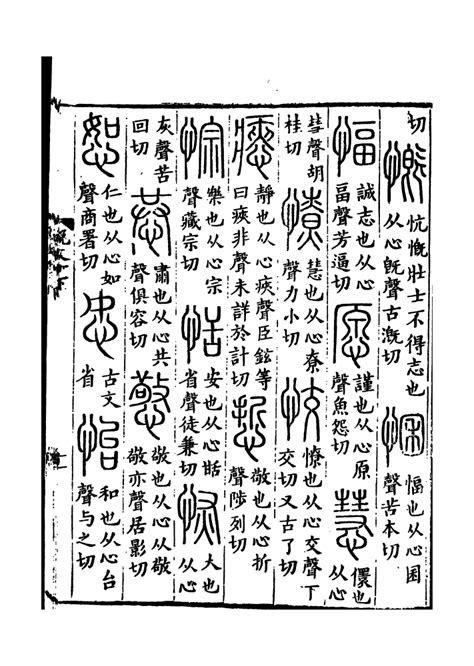 切慨忼慨壯士不得志也从心旣聲古漑切悃愊也从心困聲苦本切
愊誠志也从心畐聲芳逼切愿謹也从心原聲魚怨切慧儇也从心
彗聲胡桂切憭慧也从心尞聲力小切恔憭也从心交聲下交切又古了切
瘱靜也从心疾聲臣鉉等曰疾非聲未詳於計切悊敬也从心折聲陟列切
悰樂也从心宗聲藏宗切恬安也从心甛省聲徒兼切恢大也从心
灰聲苦回切恭肅也从心共聲俱容切憼敬也从心从敬敬亦聲居影切
恕仁也从心如聲商署切㣽古文省怡和也从心台聲與之切